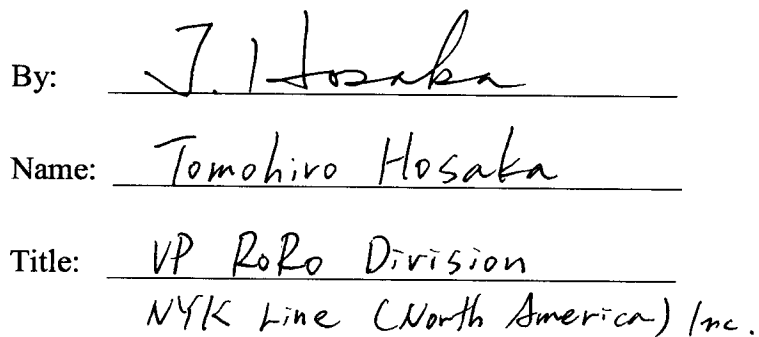 By: J. Hosaka
Name: Tomohiro Hosaka
Title: VP RoRo Division
NYK Line (North America) Inc.